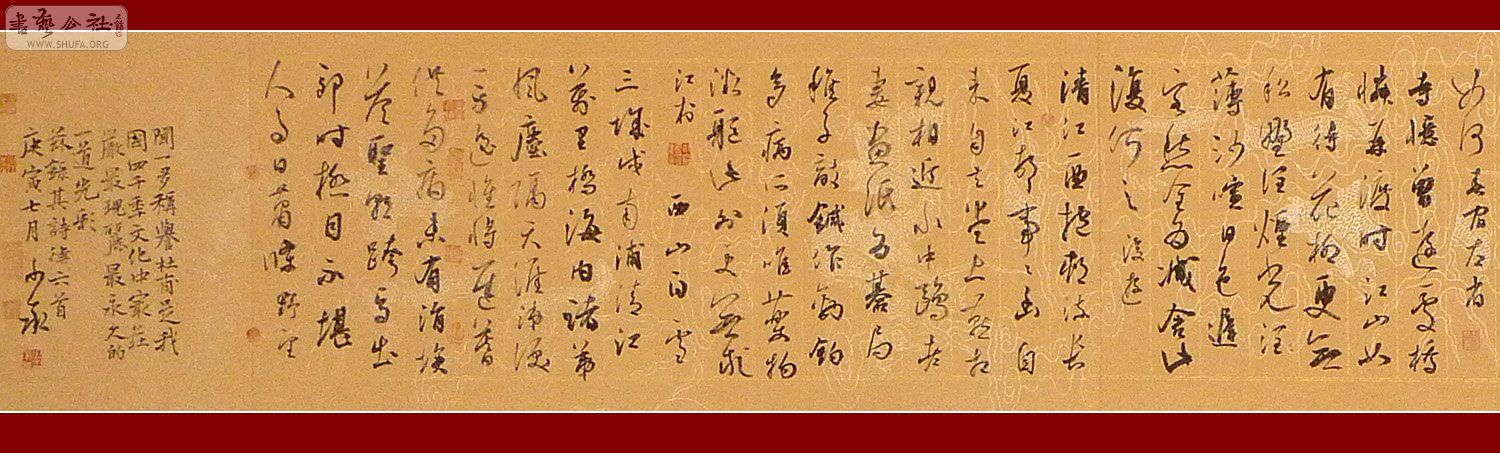 書藝公社
WWW.SHUFA.ORG
如何 春宿左省
寺憶曾遊處橋
憐再渡時江山如
有待花柳更無
私野潤煙光
薄沙暄日色遲
客愁全為減舍此
復何之 後遊
清江一曲抱村流長
夏江村事事幽自
來自去堂上燕相
親相近水中鷗老
妻畫紙為碁局
稚子敲鍼作釣鈎
多病所須唯藥物
微軀此外更無求
江村 西山白雪
三城戍南浦清江
萬里橋海內諸弟
風塵隔天涯涕淚
一身遥惟將遲暮
供多病未有涓埃
答聖朝跨馬出
郊時極目不堪
人事日蕭條 野望
聞一多稱譽杜甫是我
國四千年文化中最莊
嚴最瑰麗最永久的
一道光彩
茲錄其詩律六首
庚寅七月